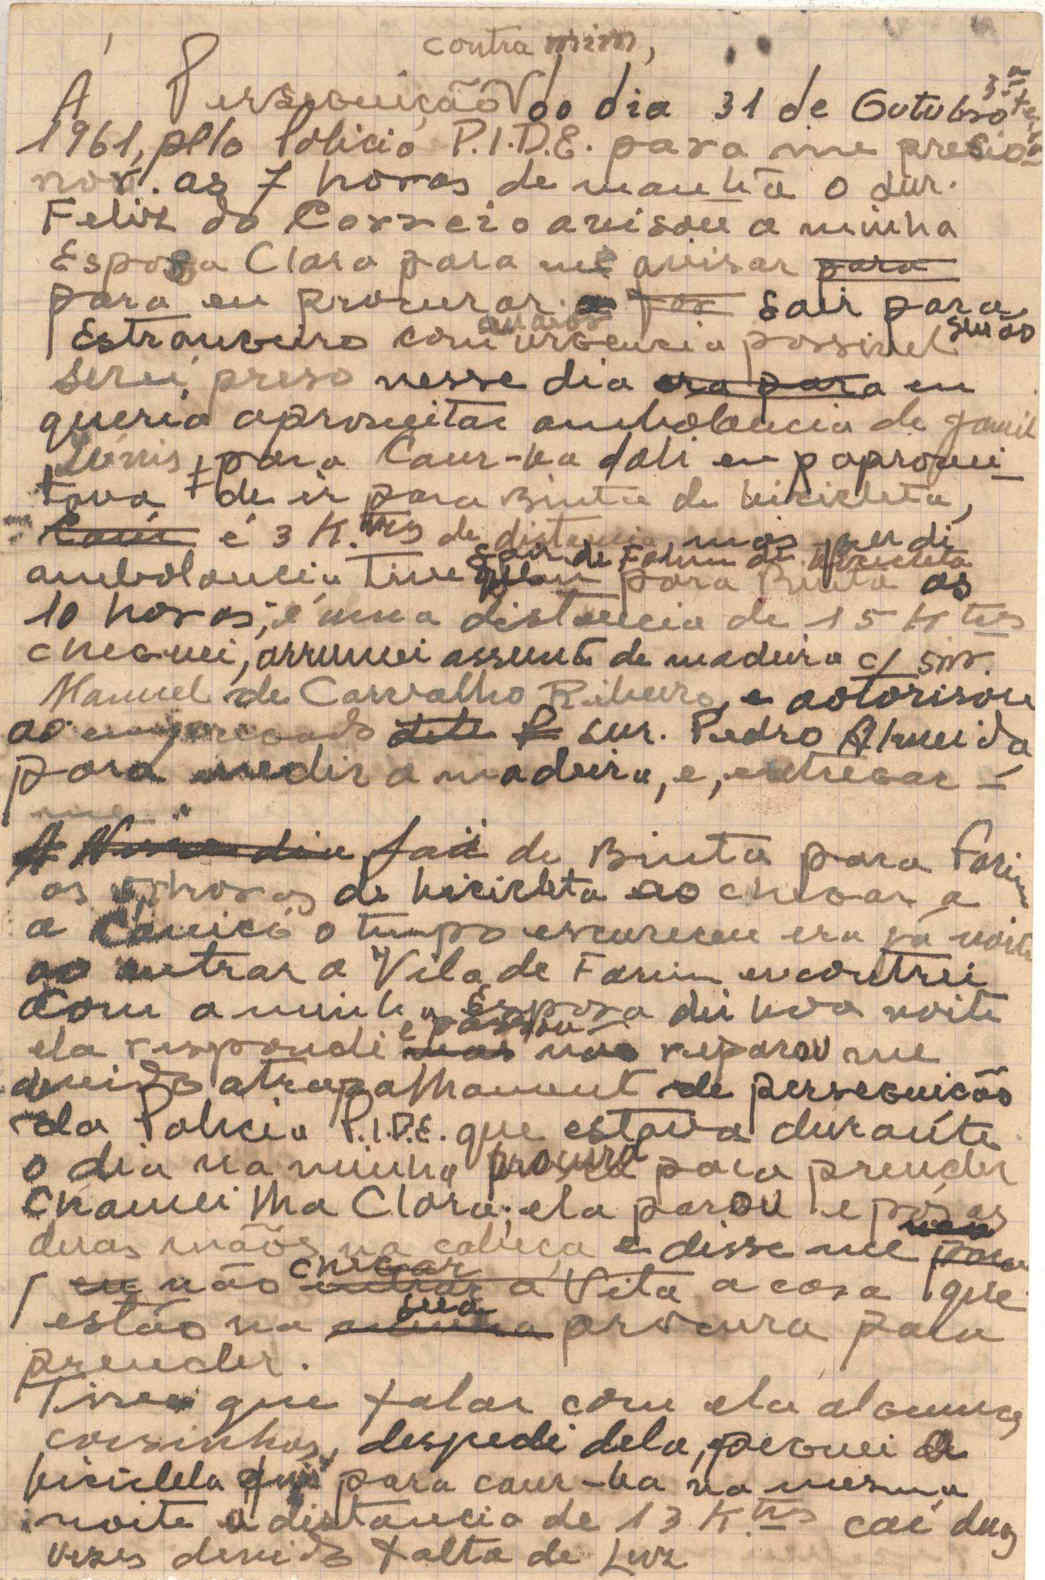 contra mim,
A Perseguição do dia 31 de Outubro 3ª
1961, pelo Policia P.I.D.E. para me presio
nar. as 7 horas de manhã o snr.
Feliz do Correio avisou a minha
Esposa Clara para me avisar para
para eu procurar a sair para
Estrangeiro com urgencia possivel senão
serei preso nesse dia era para eu
queria aproveitar ambolancia de
para Caur-ba dali eu aprovei
tava de ir para Binta de bicicleta,
é 3 K.mts de distancia mas perdi
ambolancia Tive sair de Farim de bicicleta para Binta as
10 horas, é uma distancia de 15 K tros
cheguei, arrumei assunto de madeira c/ snr.
Manuel de Carvalho Ribeiro, e autorisou
ao empregado snr. Pedro Almeida
para medir a madeira, e, entregar -
me
de Binta para Farim
as horas de bicicleta ao chegar a
a o tempo escureceu era já noite
ao entrar a Vila de Farim encontrei
com a minha Esposa dei boa noite
ela respondi e passou não reparou me
devido atrapalhament de perseguição
da Policia P.I.D.E. que estava durante
o dia na minha procura para prender
Chamei lha Clara; ela parou e pôs as
duas mãos na cabeça e disse me para
eu não chegar a Vila a casa que
estão na sua procura para
prender.
Tive que falar com ela algumas
coisinhas, despedi dela, peguei a
bicicleta fui para caur-ba na mesma
noite a distancia de 13 K.tros caí duas
vezes devido falta de Luz